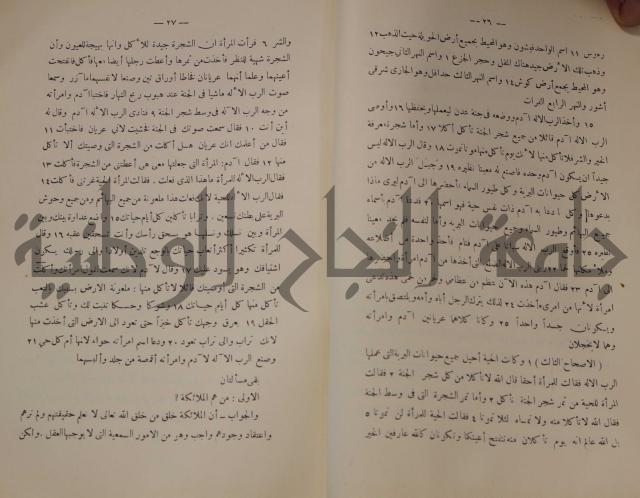 — ٢٦ —
رءوس ١١ اسم الواحد فيشون وهو المحيط بجميع أرض الحويلة حيث الذهب ١٢
وذهب تلك الارض جيد هناك المقل وحجر الجزع ١ واسم النهر الثانى جيحون
وهو المحيط بجميع أرض كوش ١٤ واسم النهر الثالث حداقل وهو الجارى شرقى
أشور والنهر الرابع الفرات
١٥ وأخذ الرب الاله آدم ووضعه فى جنة عدن ليعملها ويحفظها ١٦ وأوصى
الرب الاله آدم قائلا من جميع شجر الجنة تأكل أكلا ١٧ وأما شجرة معرفة
الخير والشر فلا تأكل منها لانك يوم تأكل منها موتا تموت ١٨ وقال الرب الاله ليس
جيداً ان يكون آدم وحده فأصنع له معينا نظيره ١٩ وجبل الرب الاله من
الارض كل حيوانات البرية وكل طيور السماء أحضرها الى آدم ليرى ماذا
يدعوها وكل ما دعا به آدم ذات نفس حية فهو اسمها
جميع البهائم وطيور السماء وجميع حيوانات البرية وأما لنفسه فلم يجد معينا
نظيره
الى آدم ٢٣ فقال آدم هذه الآن عظم من عظامى ولحم من لحمى هذه تدعى
امرأة لانها من امرىء أخذت ٢٤ لذلك يترك الرجل أباه وأمه ويلتصق بامرأته
ويكونان جسداً واحداً ٢٥ وكانا كلاهما عريانين آدم وامرأته
وهما لا يخجلان
( الاصحاح الثالث ) ١ وكانت الحية أحيل جميع حيوانات البرية التى عملها
الرب الاله فقالت للمرأة أحقا قال الله لا تأكلا من كل شجر الجنة ٢ فقالت
المرأة للحية من ثمر شجر الجنة نأكل ٣ وأما ثمر الشجرة التى فى وسط الجنة
فقال الله لا تأكلا منه ولا تمساه لئلا تموتا ٤ فقالت الحية للمرأة لن تموتا ٥
بل الله عالم انه يوم تأكلان منه تنفتح أعينكما وتكونان كالله عارفين الخير
— ٢٧ —
والشر ٦ فرأت المرأة ان الشجرة جيدة للأكل وانها بهيجة للعيون وأن
الشجرة شهية للنظر فأخذت من ثمرها وأعطت رجلها أيضا معها فأكل فانفتحت
أعينهما وعلما أنهما عريانان فخاطا أوراق تين وصنعا لانفسهما مآزر وسمعا
صوت الرب الاله ماشيا فى الجنة عند هبوب ريح النهار فاختبأ آدم وامرأته
من وجه الرب الاله فى وسط شجر الجنة ٩ فنادى الرب الاله آدم وقال له
أين أنت ١٠ فقال سمعت صوتك فى الجنة فخشيت لانى عريان فاختبأت ١١
فقال من أعلمك انك عريان هل أكلت من الشجرة التى وصيتك ألا تأكل
منها ١٢ فقال آدم: المرأة التى جعلتها معى هى أعطتنى من الشجرة فأكلت ١٣
فقال الرب الاله للمرأة ما هذا الذى فعلت . فقالت المرأة الحية غرتنى فأكلت ١٤
فقال الرب الاله للحية لانك فعلت هذا ملعونة من جميع البهائم ومن جميع وحوش
البرية على بطنك تسعين . وترابا تأكلين كل أيام حياتك ١٥ واضع عداوة بينك وبين
المرأة وبين نسلك ونسلها هو يسحق رأسك وأنت تسحقين عقبه ١٦ وقال
للمرأة تكثيرا أكثر أتعاب حبلك بالوجع تلدين أولادا والى رجلك يكون
اشتياقك وهو يسود عليك ١٧ وقال لآدم لانك سمعت لقول امرأتك وأكلت
من الشجرة التى أوصيتك قائلا لا تأكل منها : ملعونة الارض بسببك بالتعب
تأكل منها كل أيام حياتك ١٨ وشوكا وحسكا تنبت لك وتأكل عشب
الحقل ١٩ بعرق وجهك تأكل خبزاً حتى تعود الى الارض التى أخذت منها
لانك تراب والى تراب تعود ٢٠ ودعا اسم امرأته حواء لانها أم كل حى ٢١
وصنع الرب الاله لآدم وامرأته أقمصة من جلد وألبسهما
بقى مسألتان
الاولى : من هم الملائكة ?
والجواب – أن الملائكة خلق من خلق الله تعالى لا نعلم حقيقتهم ولم نرهم
واعتقاد وجودهم واجب وهو من الامور السمعية التى لا يوجبها العقل . ولكن
جامعة النجاح الوطنية